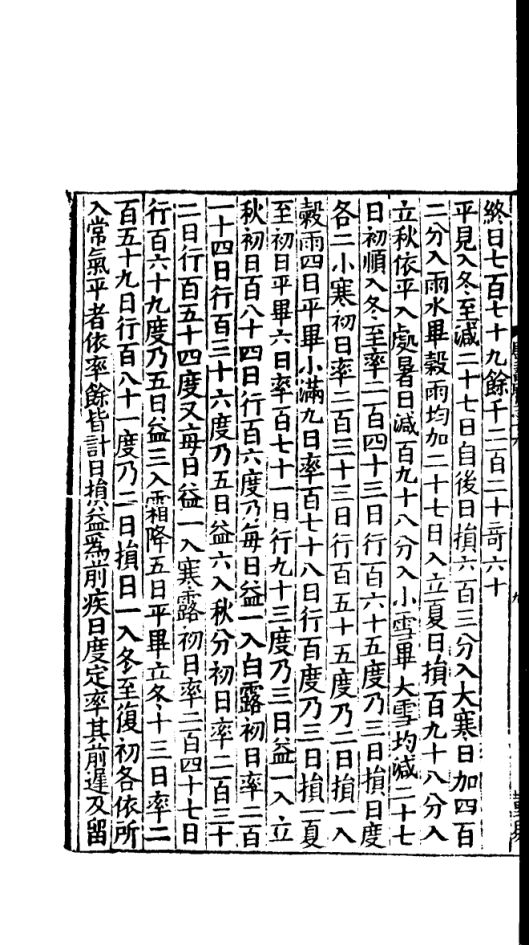 終日七百七十九餘千二百二十竒六十
平見入冬至減二十七日自後日損六百三分入大寒日加四百
二分入雨水畢穀雨均加二十七日入立夏日損百九十八分入
立秋依平入處暑日減百九十八分入小雪畢大雪均減二十七
日初順入冬至率二百四十三日行百六十五度乃三日損日度
各二小寒初日率二百三十三日行百五十五度乃二日損一入
穀雨四日平畢小滿九日率百七十八日行百度乃三日損一夏
至初日平畢六日率百七十一日行九十三度乃三日益一入立
秋初日百八十四日行百六度乃每日益一入白露初日率二百
一十四日行百三十六度乃五日益六入秋分初日率二百三十
二日行百五十四度又每日益一入寒露初日率二百四十七日
行百六十九度乃五日益三入霜降五日平畢立冬十三日率二
百五十九日行百八十一度乃二日損日一入冬至復初各依所
入常氣平者依率餘皆計日損益為前疾日度定率其前遲及留